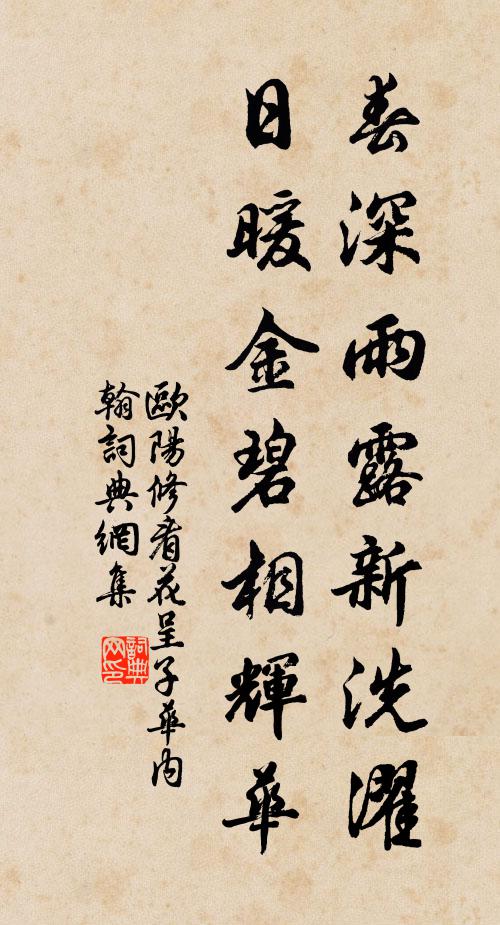 春深雨露新洗濯
日暖金碧相輝華
歐陽修看花呈子華內
翰詞典網集
詞典網印